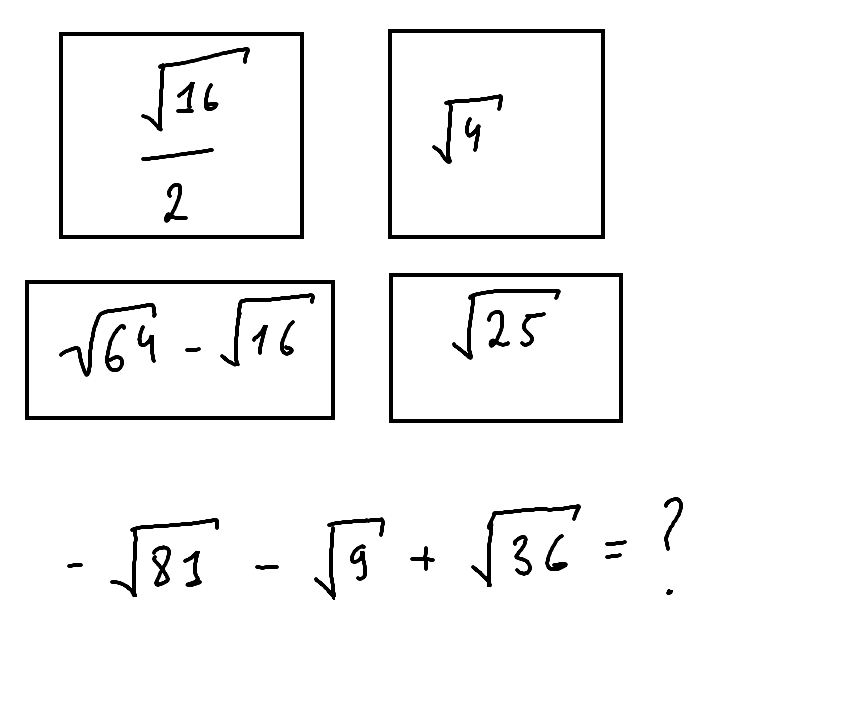 √16 / 2
√4
√64 - √16
√25
- √81 - √9 + √36 = ?